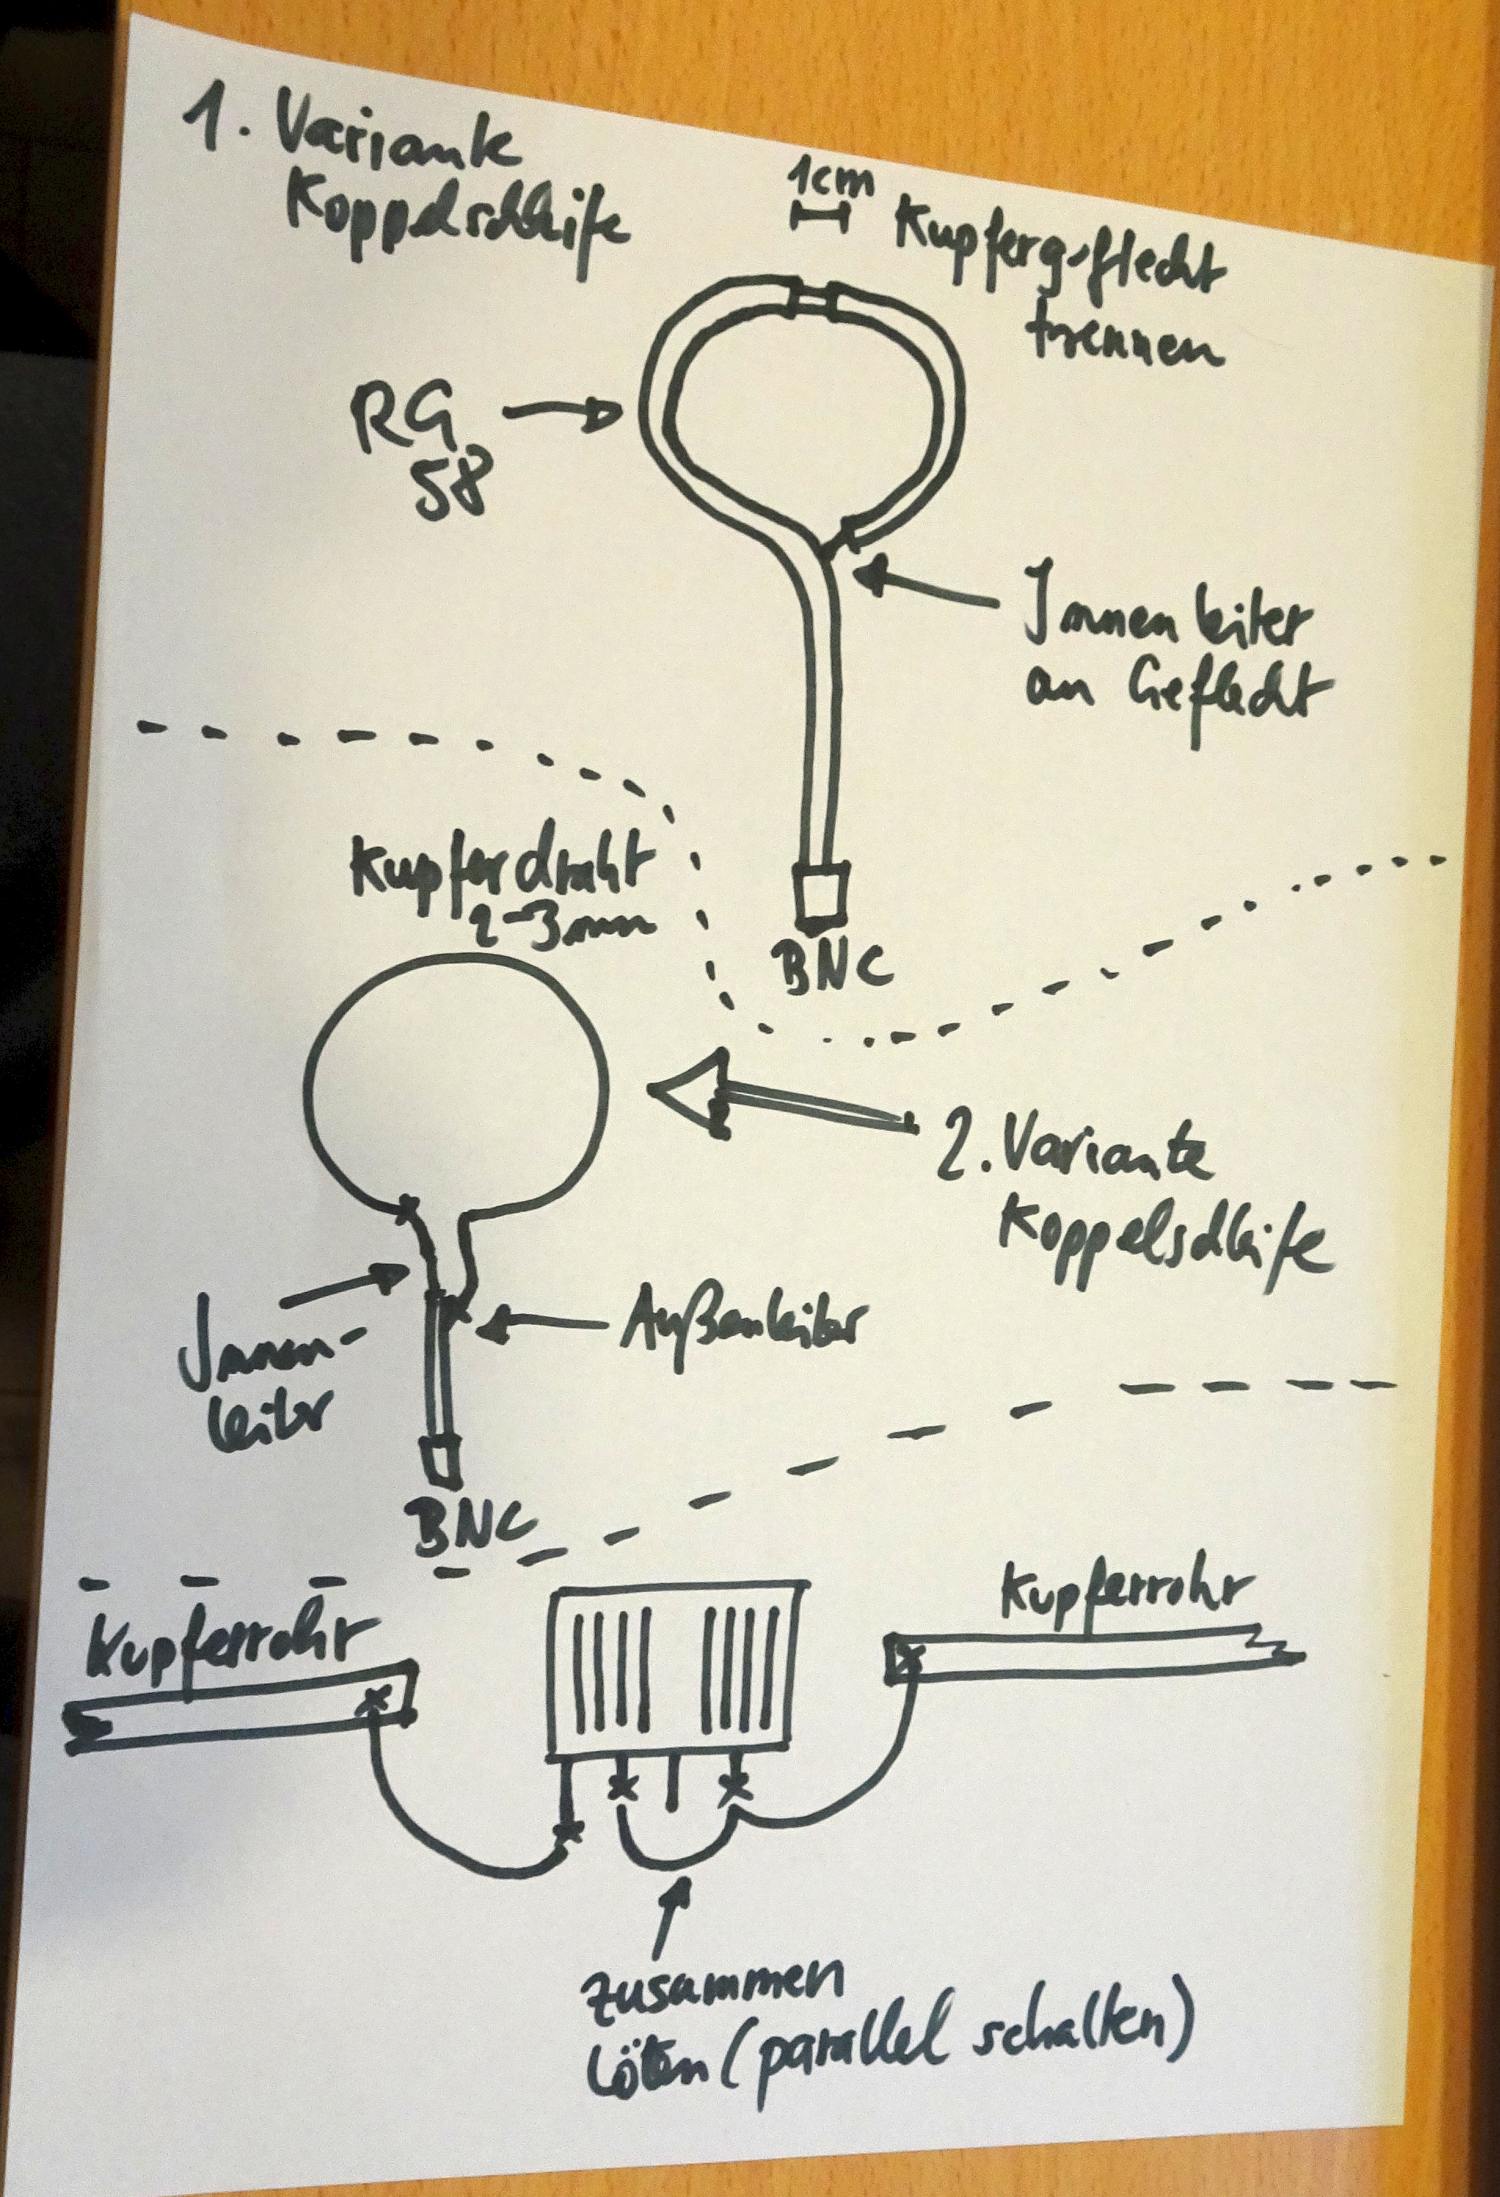 1. Variante
Koppelschleife
1cm
Kupfergeflecht
trennen
RG
58
Innenleiter
an Geflecht
Kupferdraht
2-3mm
BNC
2. Variante
Koppelschleife
Innen-
leiter
Außenleiter
BNC
Kupferrohr
Kupferrohr
zusammen
löten (parallel schalten)